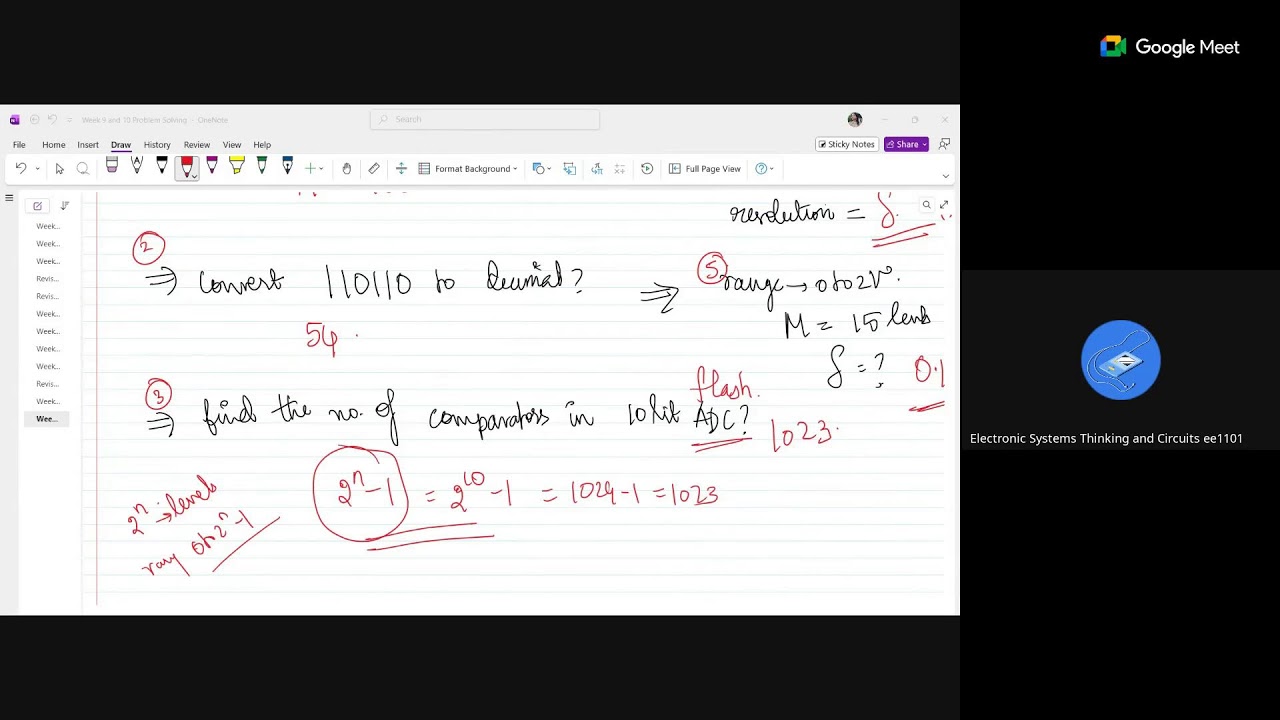 Google Meet
Week 9 and 10 Problem Solving - OneNote
Search
File Home Insert Draw History Review View Help
Sticky Notes
Share
Format Background
Full Page View
Week...
Week...
Week...
Revis...
Revis...
Week...
Week...
Week...
Week...
Revis...
Week...
Wee...
resolution = δ
②
⇒ Convert 110110 to decimal?
54
⑤
⇒ range → 0 to 2V.
M = 15 levels
δ = ? 0.1
③
⇒ find the no. of comparators in 10 bit flash ADC? 1023.
2^n - 1 = 2^10 - 1 = 1024 - 1 = 1023
2^n → levels
range 0 to 2^n - 1
Electronic Systems Thinking and Circuits ee1101